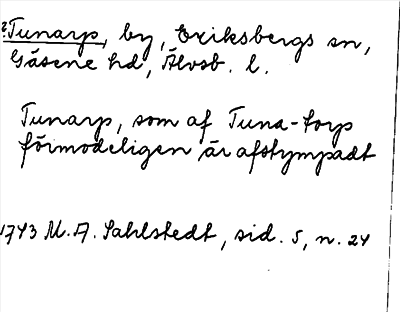 ? Tunarp, by, Eriksbergs sn,
Gäsene hd, Älvsb. l.
Tunarp, som af Tuna-torp
förmodeligen är afstympadt
1743 M. A. Sahlstedt, sid. 5, n. 24